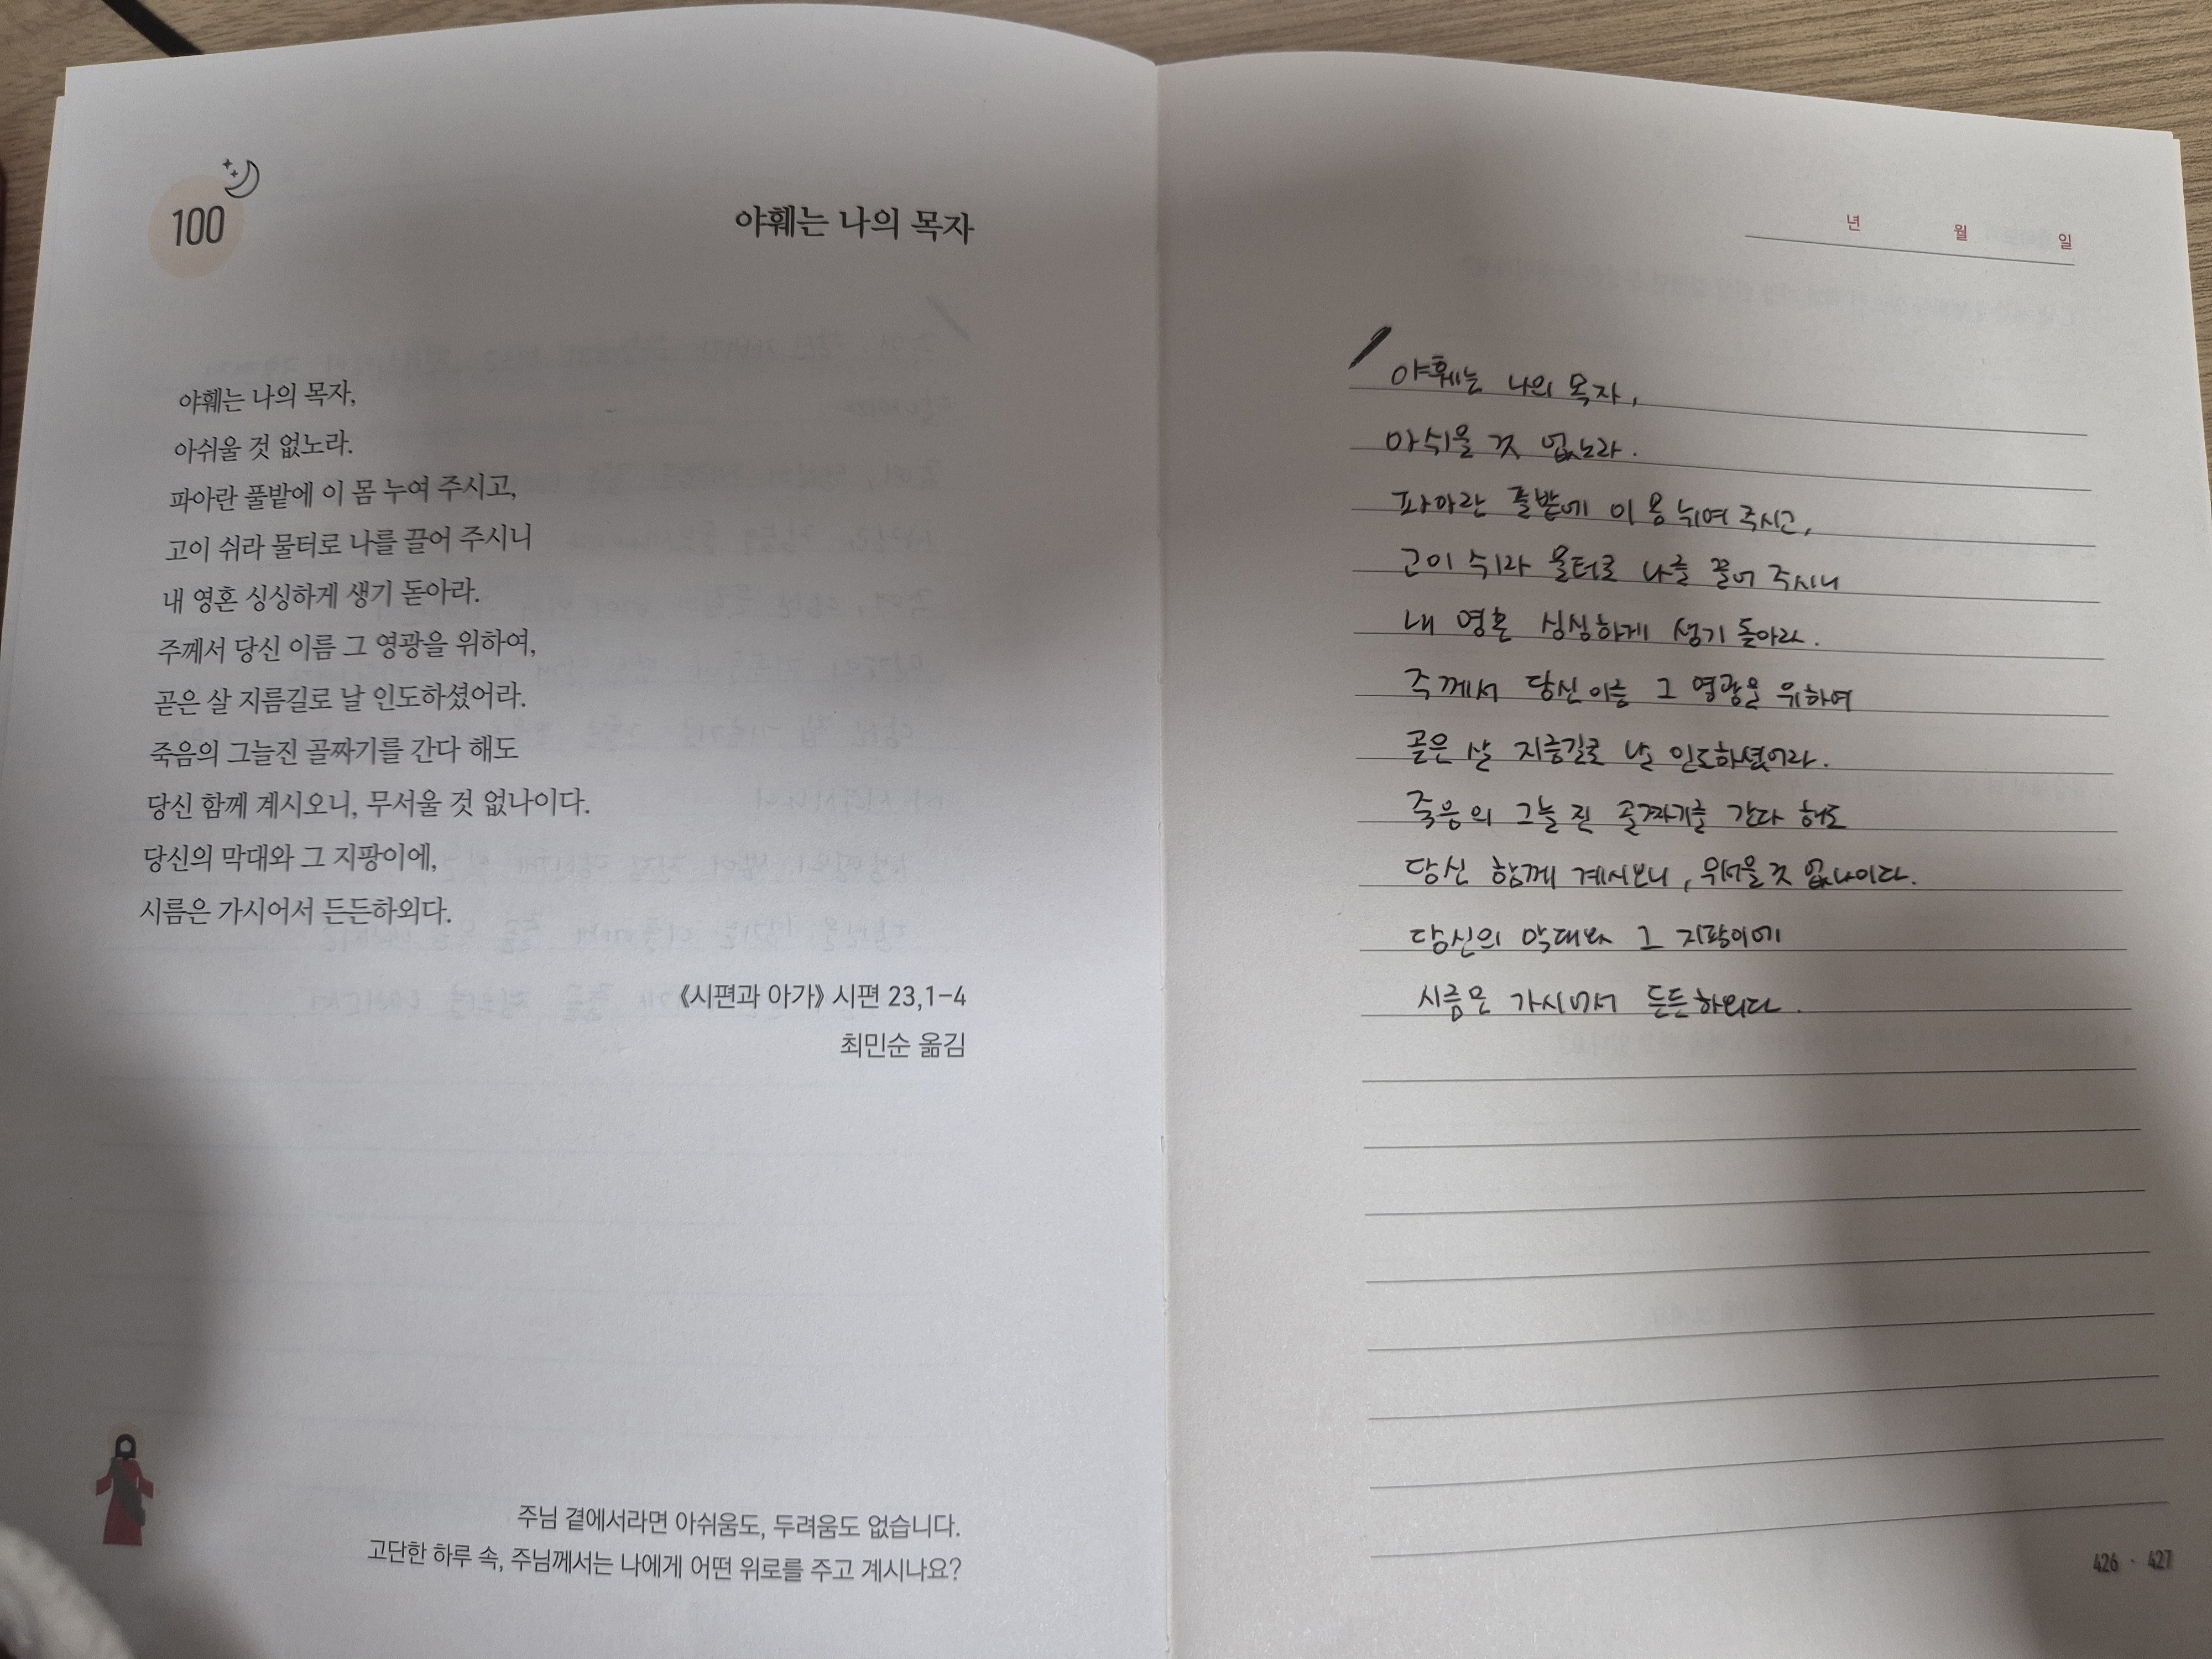 100
야훼는 나의 목자
야훼는 나의 목자,
아쉬울 것 없노라.
파아란 풀밭에 이 몸 누여 주시고,
고이 쉬라 물터로 나를 끌어 주시니
내 영혼 싱싱하게 생기 돋아라.
주께서 당신 이름 그 영광을 위하여,
곧은 살 지름길로 날 인도하셨어라.
죽음의 그늘진 골짜기를 간다 해도
당신 함께 계시오니, 무서울 것 없나이다.
당신의 막대와 그 지팡이에,
시름은 가시어서 든든하외다.
《시편과 아가》 시편 23,1–4
최민순 옮김
주님 곁에서라면 아쉬움도, 두려움도 없습니다.
고단한 하루 속, 주님께서는 나에게 어떤 위로를 주고 계시나요?
년 월 일
야훼는 나의 목자,
아쉬울 것 없노라.
파아란 풀밭에 이 몸 뉘여 주시고,
고이 쉬라 물터로 나를 끌어 주시니
내 영혼 싱싱하게 생기 돋아라.
주께서 당신 이름 그 영광을 위하여
곧은 살 지름길로 날 인도하셨어라.
죽음의 그늘진 골짜기를 간다 해도
당신 함께 계시오니, 무서울 것 없나이다.
당신의 막대와 그 지팡이에
시름은 가시어서 든든하외다.
426 · 427